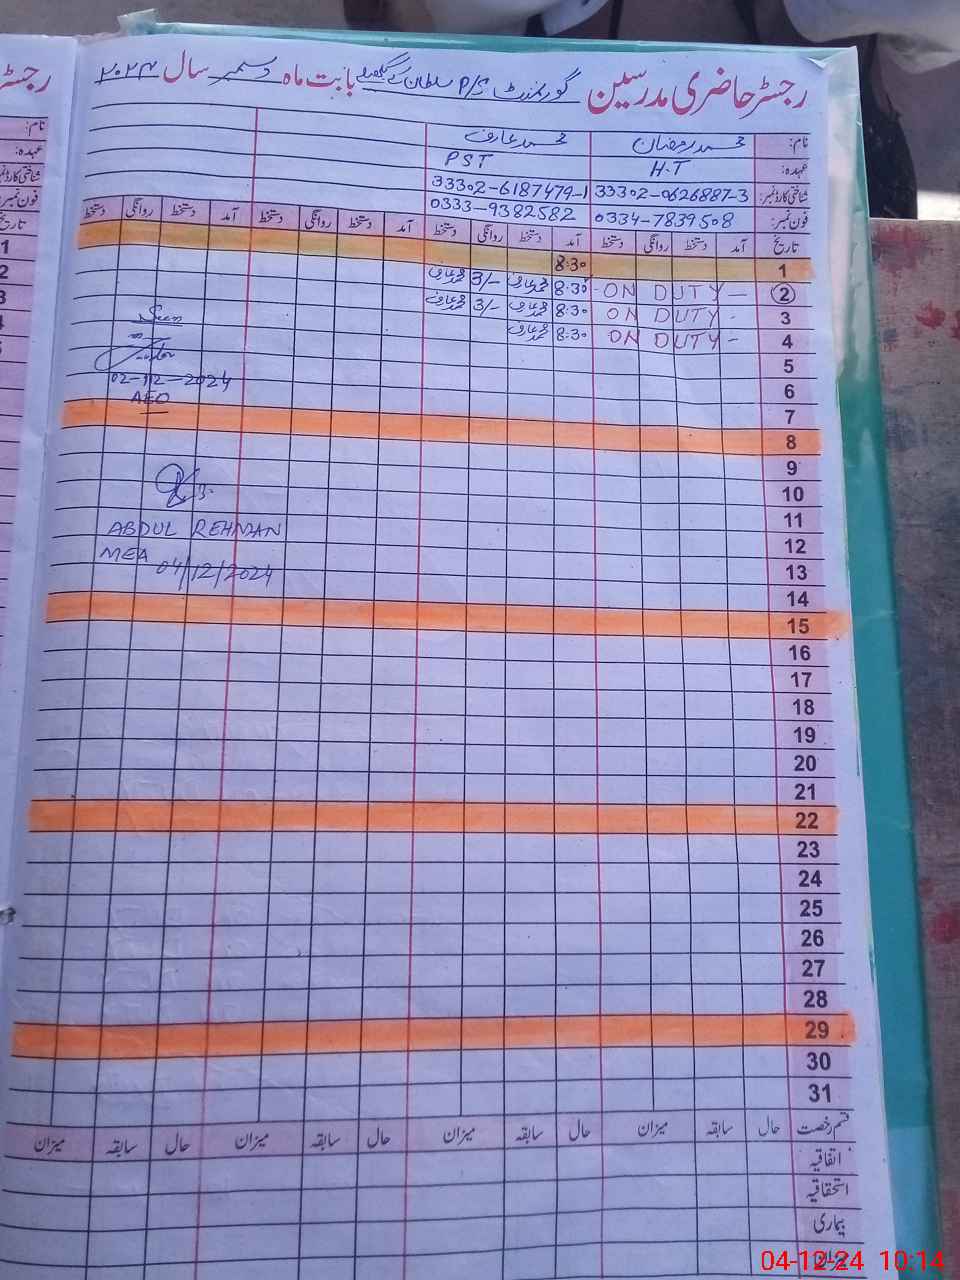 رجسٹر حاضری مدرسین گورنمنٹ P/S سلطان کے بابت ماہ دسمبر سال ۲۰۲۴
نام: محمد رمضان محمد عارف
عہدہ: H.T PST
شناختی کارڈ نمبر: 33302-0626887-3 33302-6187479-1
فون نمبر: 0334-7839508 0333-9382582
تاریخ آمد دستخط روانگی دستخط آمد دستخط روانگی دستخط آمد دستخط روانگی دستخط آمد دستخط روانگی دستخط
1 8:30
2 ON DUTY - 8:30 محمد عارف 3/- محمد عارف
3 ON DUTY - 8:30 محمد عارف 3/- محمد عارف
4 ON DUTY - 8:30 محمد عارف
5
6
7
8
9
10
11
12
13
14
15
16
17
18
19
20
21
22
23
24
25
26
27
28
29
30
31
Seen
02-12-2024
AEO
ABDUL REHMAN
MEA 04/12/2024
قسم رخصت حال سابقہ میزان حال سابقہ میزان حال سابقہ میزان حال سابقہ میزان
اتفاقیہ
استحقاقیہ
بیماری
میزان
رجسٹر
نام:
عہدہ:
شناختی کارڈ نمبر
فون نمبر:
تاریخ
1
2
3
04-12-24 10:14